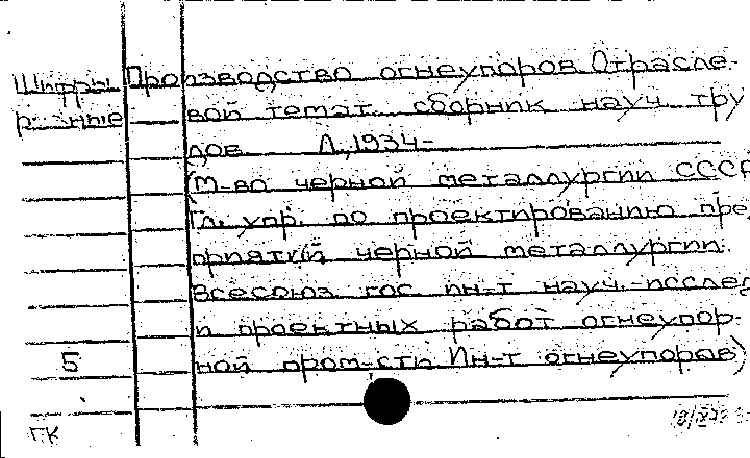 Шифры Производство огнеупоров. Отрасле-
разные вой темат. сборник науч. тру
дов. Л., 1934-
(М-во черной металлургии СССР
Гл. упр. по проектированию пре
приятий черной металлургии.
Всесоюз. гос. ин-т науч.-исслед
и проектных работ огнеупор-
5 ной пром-сти Ин-т огнеупоров)
ГК